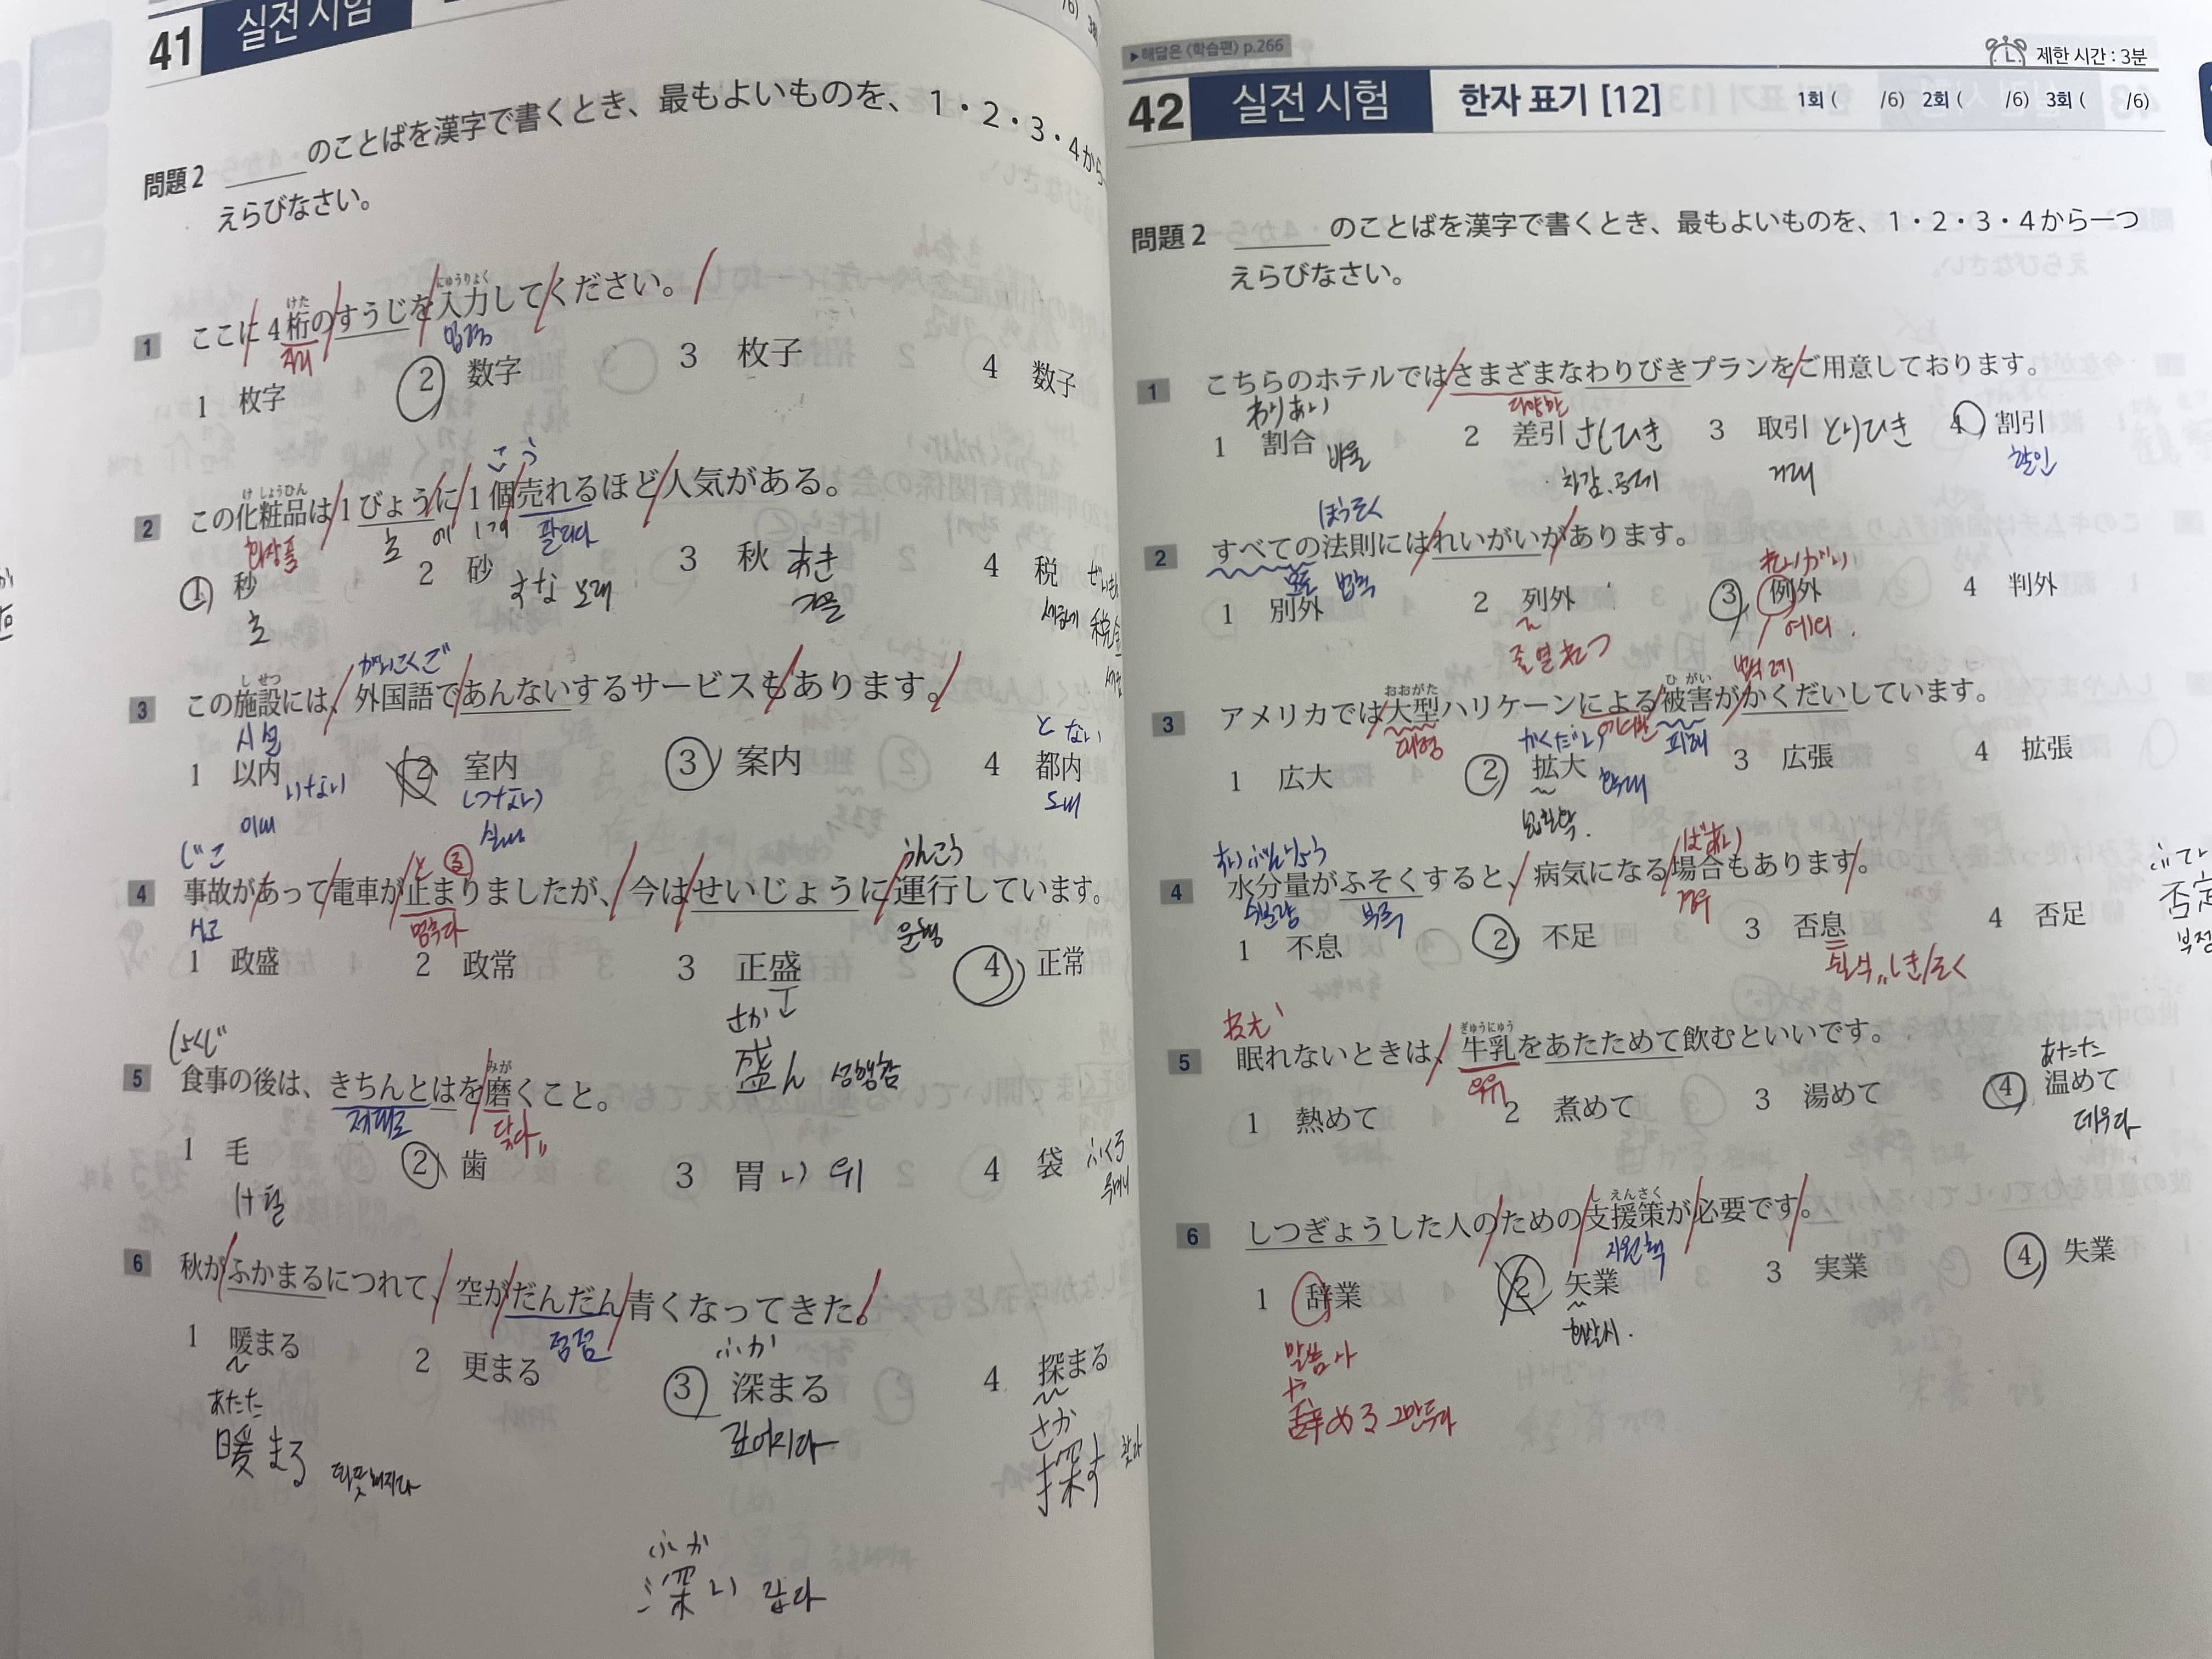 41 실전 시험
問題2 ____のことばを漢字で書くとき、最もよいものを、1・2・3・4から
えらびなさい。
けた にゅうりょく
1 ここに4桁のすうじを入力してください。
1 枚字 2 数字 3 枚子 4 数子
こ う
け しょうひん
2 この化粧品は1びょうに1個売れるほど人気がある。
화장품 초 에 1개 팔리다
1 秒 2 砂 すな 모래 3 秋 あき 4 税
초 가을
がいこくご
し せつ
3 この施設には、外国語であんないするサービスもあります。
시설
1 以内 いない 2 室内 3 案内 4 都内
と ない
이내 しつない 실내 도내
じこ と る うんこう
4 事故があって電車が止まりましたが、今はせいじょうに運行しています。
사고 멈추다 운행
1 政盛 2 政常 3 正盛 4 正常
さか
盛ん 성행함
しょくじ みが
5 食事の後は、きちんとはを磨くこと。
제대로 닦다
1 毛 2 歯 3 胃 い 위 4 袋 ふくろ
け 털
6 秋がふかまるにつれて、空がだんだん青くなってきた。
점점
1 暖まる 2 更まる 3 深まる 4 探まる
ふか
あたた 깊어지다 さか
暖まる 따뜻해지다 探す 찾다
ふか
深い 깊다
▶해답은 〈학습편〉 p.266
제한 시간 : 3분
42 실전 시험 한자 표기 [12] 1회 ( /6) 2회 ( /6) 3회 ( /6)
問題2 ____のことばを漢字で書くとき、最もよいものを、1・2・3・4から一つ
えらびなさい。
1 こちらのホテルではさまざまなわりびきプランをご用意しております。
わりあい 다양한
1 割合 2 差引 さしひき 3 取引 とりひき 4 割引
비율 차감, 공제 거래 할인
ほうそく
2 すべての法則にはれいがいがあります。
모든 법칙 れいがい
1 別外 2 列外 3 例外 4 判外
예외
ひ がい
おおがた
3 アメリカでは大型ハリケーンによる被害がかくだいしています。
대형 かくだい 피해
1 広大 2 拡大 확대 3 広張 4 拡張
すいぶんりょう ばあい
4 水分量がふそくすると、病気になる場合もあります。
수분량 부족 경우
1 不息 2 不足 3 否息 4 否足
ぎゅうにゅう
5 眠れないときは、牛乳をあたためて飲むといいです。
우유 あたた
1 熱めて 2 煮めて 3 湯めて 4 温めて
데우다
し えんさく
6 しつぎょうした人のための支援策が必要です。
지원책
1 辞業 2 矢業 3 実業 4 失業
말씀 사 화살 시.
や
辞める 그만두다